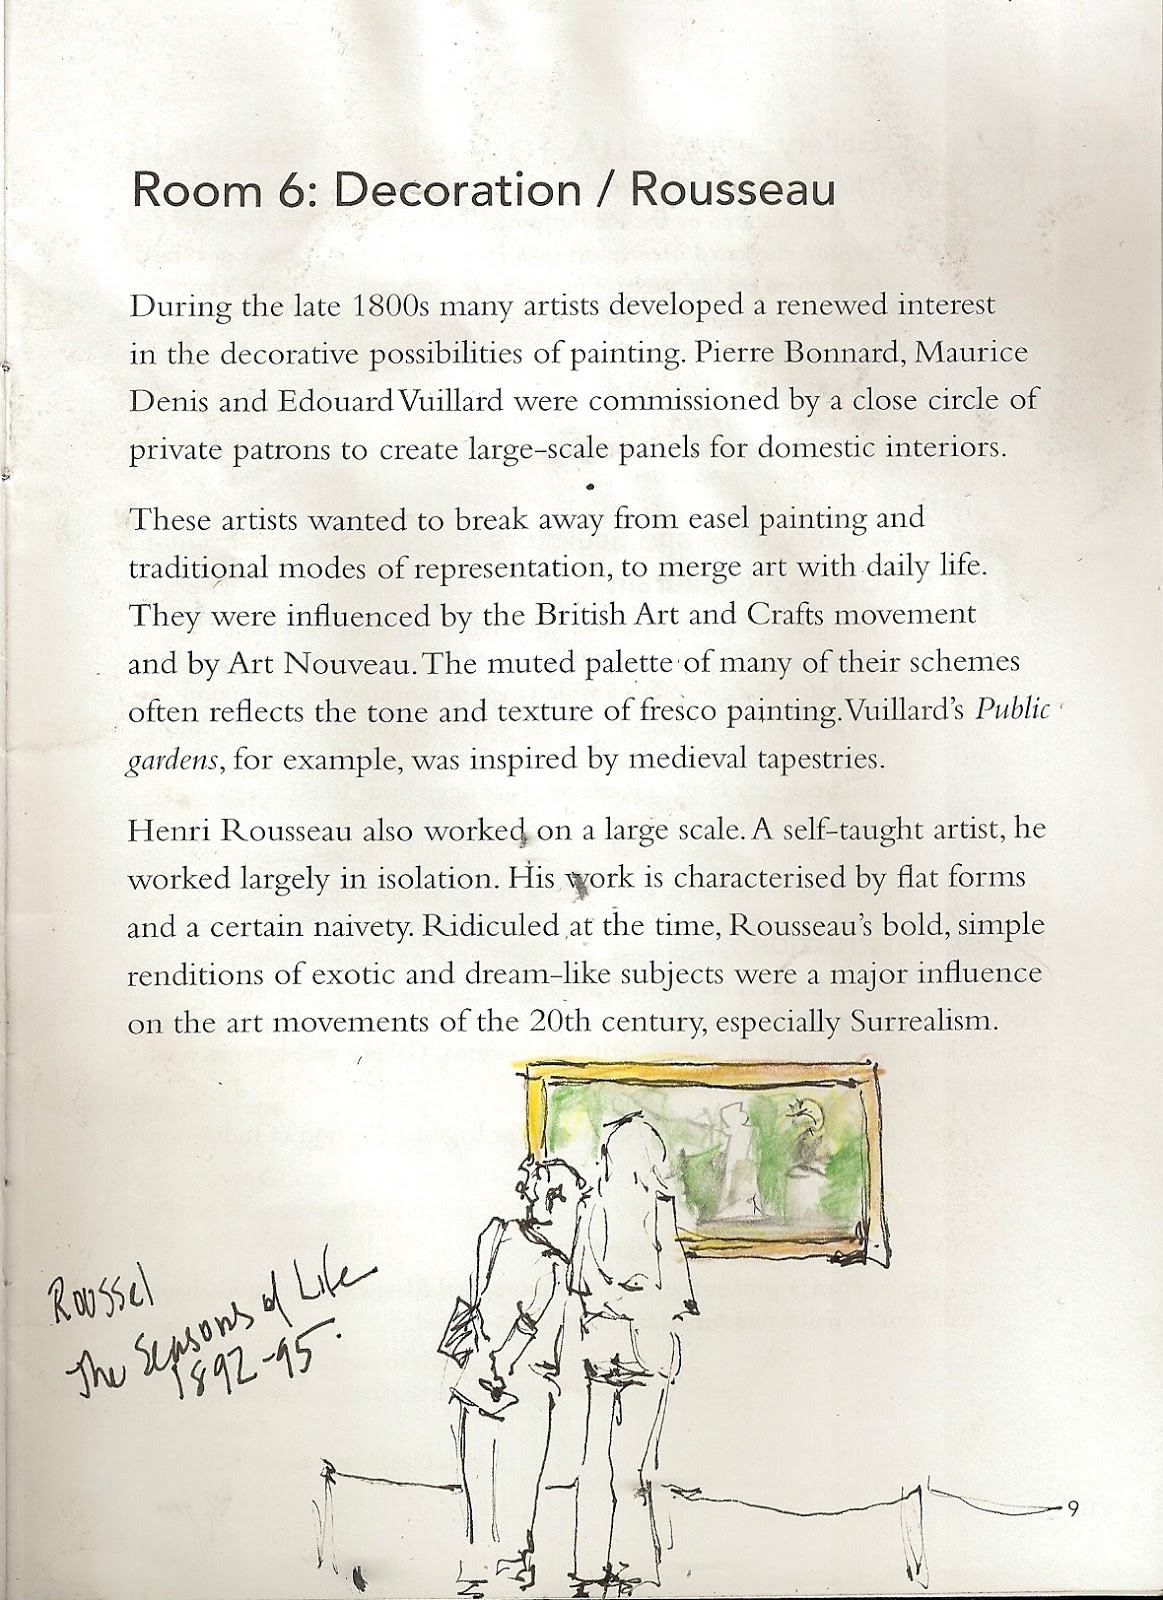 Room 6: Decoration / Rousseau
During the late 1800s many artists developed a renewed interest
in the decorative possibilities of painting. Pierre Bonnard, Maurice
Denis and Edouard Vuillard were commissioned by a close circle of
private patrons to create large-scale panels for domestic interiors.
These artists wanted to break away from easel painting and
traditional modes of representation, to merge art with daily life.
They were influenced by the British Art and Crafts movement
and by Art Nouveau. The muted palette of many of their schemes
often reflects the tone and texture of fresco painting. Vuillard's Public
gardens, for example, was inspired by medieval tapestries.
Henri Rousseau also worked on a large scale. A self-taught artist, he
worked largely in isolation. His work is characterised by flat forms
and a certain naivety. Ridiculed at the time, Rousseau's bold, simple
renditions of exotic and dream-like subjects were a major influence
on the art movements of the 20th century, especially Surrealism.
Roussel
The Seasons of Life
1892-95.
9